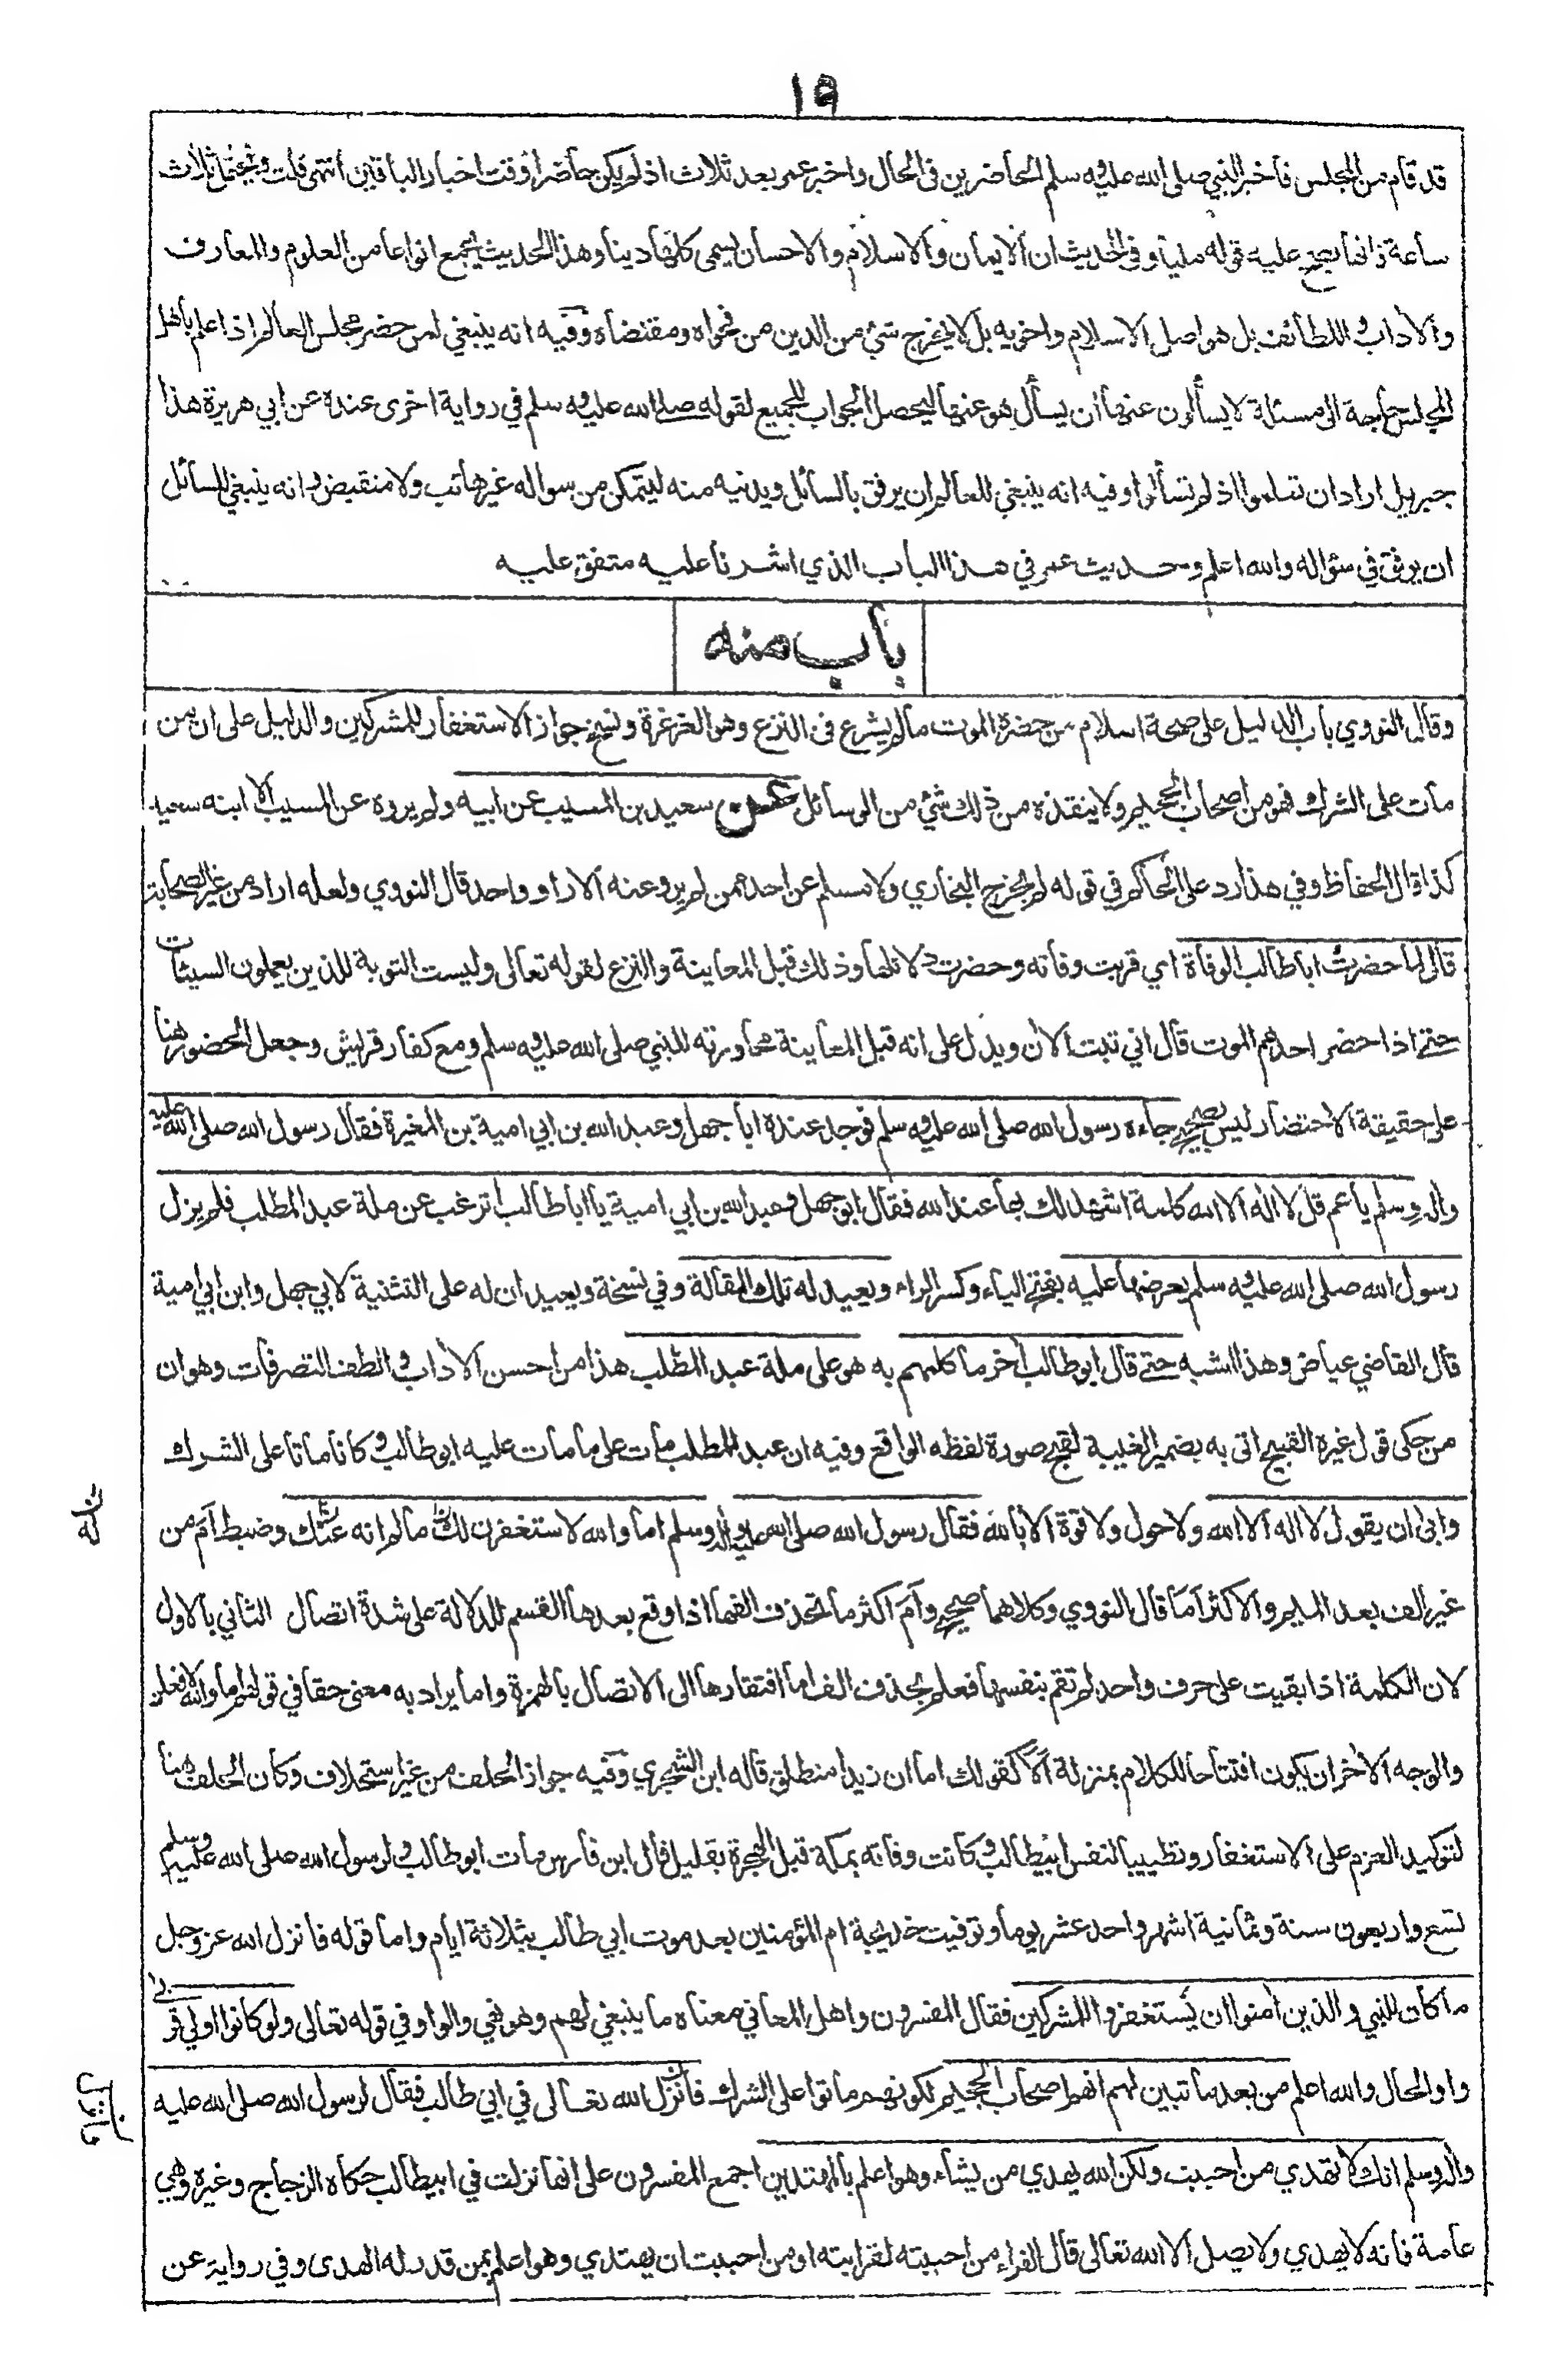 ١٩
قد قام من المجلس فاخبر النبي صلى الله عليه وسلم الحاضرين في الحال واخبر عمر بعد ثلاث اذ لم يكن حاضرا وقت اخبار الباقين انتهى قلت ويحتمل ثلاث
ساعة زمانها يصح عليه قوله مليا وفي الحديث ان الايمان والاسلام والاحسان يسمى كلها دينا وهذا الحديث يجمع انواعا من العلوم والمعارف
والاداب واللطائف بل هو اصل الاسلام واخويه بل لا يخرج شئ من الدين من فحواه ومقتضاه وفيه انه ينبغي لمن حضر مجلس العالم اذا علم باهل
المجلس حاجة الى مسئلة لا يسألون عنها ان يسأل هو عنها ليحصل الجواب للجميع لقوله صلى الله عليه وسلم في رواية اخرى عنده عن ابي هريرة هذا
جبريل اراد ان تعلموا اذ لم تسألوا وفيه انه ينبغي للعالم ان يرفق بالسائل ويدنيه منه ليتمكن من سواله غير هائب ولا منقبض وانه ينبغي للسائل
ان يرفق في سؤاله والله اعلم وحديث عمر في هذا الباب الذي اشرنا عليه متفق عليه
باب منه
وقال النووي باب الدليل على صحة اسلام من حضرة الموت مالم يشرع في النزع وهو الغرغرة ونسخ جواز الاستغفار للمشركين والدليل على ان من
مات على الشرك فهو من اصحاب الجحيم ولا ينقذه من ذلك شئ من الوسائل عن سعيد بن المسيب عن ابيه ولم يروه عن المسيب الا ابنه سعيد
كذا قال الحفاظ وفي هذا رد على الحاكم في قوله لم يخرج البخاري ولا مسلم عن احد ممن لم يرو عنه الا راو واحد قال النووي ولعله اراد من غير الصحابة
قال لما حضرت ابا طالب الوفاة اي قربت وفاته وحضرت دلائلها وذلك قبل المعاينة والنزع لقوله تعالى وليست التوبة للذين يعملون السيئات
حتى اذا حضر احدهم الموت قال اني تبت الآن ويدل على انه قبل المعاينة محاورته للنبي صلى الله عليه وسلم ومع كفار قريش وجعل الحضور هنا
على حقيقة الاحتضار ليس بصحيح جاءه رسول الله صلى الله عليه وسلم فوجد عنده ابا جهل وعبد الله بن ابي امية بن المغيرة فقال رسول الله صلى الله عليه
واله وسلم يا عم قل لا اله الا الله كلمة اشهد لك بها عند الله فقال ابو جهل وعبد الله بن ابي امية يا ابا طالب أترغب عن ملة عبد المطلب فلم يزل
رسول الله صلى الله عليه وسلم يعرضها عليه بفتح الياء وكسر الراء ويعيد له تلك المقالة وفي نسخة ويعيدان له على التثنية لابي جهل وابن ابي امية
قال القاضي عياض وهذا اشبه حتى قال ابو طالب آخر ما كلمهم به هو على ملة عبد المطلب هذا من احسن الآداب والطف التصرفات وهو ان
من حكى قول غيره القبيح اتى به بضمير الغيبة لقبح صورة لفظه الواقع وفيه ان عبد المطلب مات على ما مات عليه ابو طالب وكانا ماتا على الشرك
وابى ان يقول لا اله الا الله ولا حول ولا قوة الا بالله فقال رسول الله صلى الله عليه واله وسلم اما والله لاستغفرن لك ما لم انه عنك وضبط أم من
غير الف بعد الميم والاكثر أما قال النووي وكلاهما صحيح وأم اكثر ما تحذف الفها اذا وقع بعدها القسم للدلالة على شدة اتصال الثاني بالاول
لان الكلمة اذا بقيت على حرف واحد لم تقم بنفسها فعلم بحذف الف اما افتقارها الى الاتصال بالهمزة واما يراد به معنى حقا في قولهم اما والله لافعلن
والوجه الآخر ان يكون افتتاحا للكلام بمنزلة ألا كقولك اما ان زيدا منطلق قاله ابن الشجري وفيه جواز الحلف من غير استحلاف وكان الحلف هنا
لتوكيد العزم على الاستغفار وتطييبا لنفس ابيطالب وكانت وفاته بمكة قبل الهجرة بقليل قال ابن فارس مات ابو طالب ولرسول الله صلى الله عليه وسلم
تسع واربعون سنة وثمانية اشهر واحد عشر يوما وتوفيت خديجة ام المؤمنين بعد موت ابي طالب بثلاثة ايام واما قوله فانزل الله عز وجل
ما كان للنبي والذين آمنوا ان يستغفروا للمشركين فقال المفسرون واهل المعاني معناه ما ينبغي لهم وهو نهي والواو في قوله تعالى ولو كانوا اولي قربى
واو الحال والله اعلم من بعد ما تبين لهم انهم اصحاب الجحيم لكونهم ماتوا على الشرك فانزل الله تعالى في ابي طالب فقال لرسول الله صلى الله عليه
واله وسلم انك لا تهدي من احببت ولكن الله يهدي من يشاء وهو اعلم بالمهتدين اجمع المفسرون على انها نزلت في ابيطالب حكاه الزجاج وغيره وهي
عامة فانه لا يهدي ولا يضل الا الله تعالى قال الفراء من احببته لقرابته او من احببت ان يهتدي وهو اعلم بمن قدر له الهدى وفي رواية عن